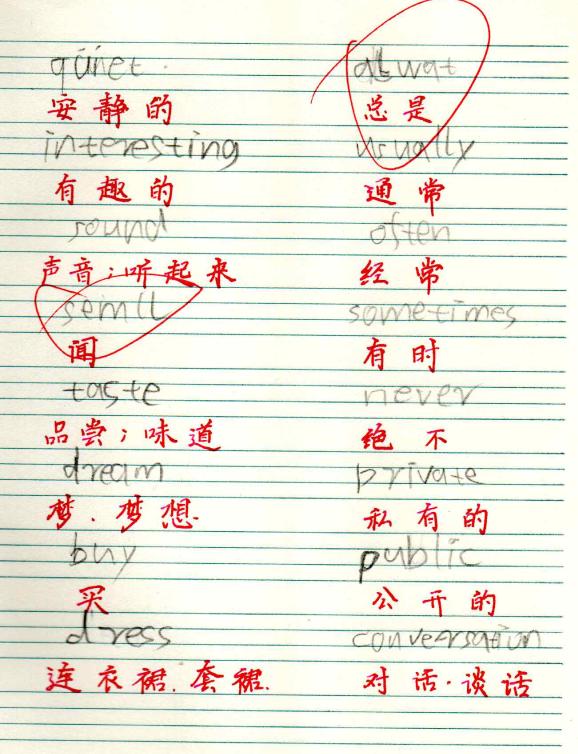 quiet
安静的
interesting
有趣的
sound
声音;听起来
semll
闻
taste
品尝;味道
dream
梦.梦想.
buy
买
dress
连衣裙.套裙.
alwat
总是
usually
通常
often
经常
sometimes
有时
never
绝不
private
私有的
public
公开的
conversation
对话.谈话